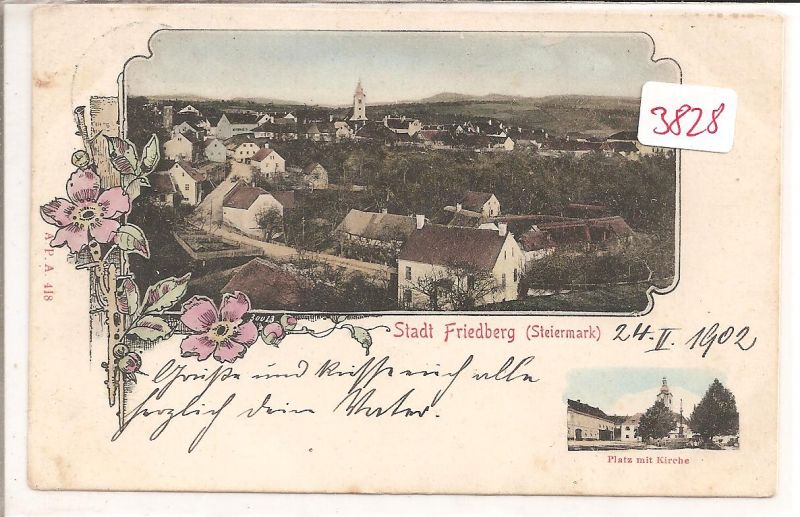 3828
A. P. A. 418
30013
Stadt Friedberg (Steiermark) 24-II. 1902
Grüße und Küsse euch alle
herzlich dein Vater.
Platz mit Kirche